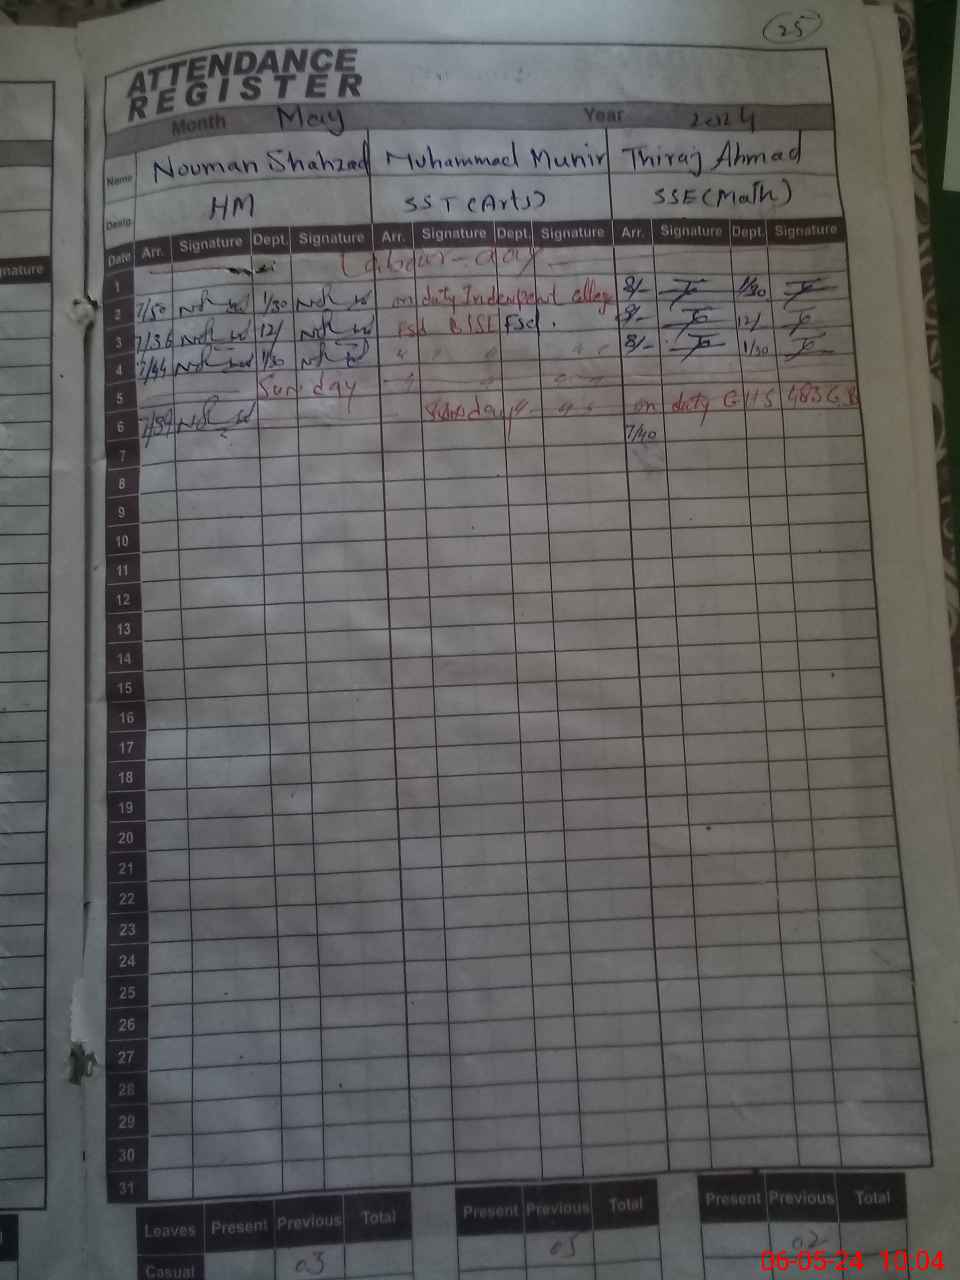 25
ATTENDANCE
REGISTER
Month May Year 2024
Name Nouman Shahzad Muhammad Munir Thiraj Ahmad
Desig. HM SST (Arts) SSE (Math)
nature
Date Arr. Signature Dept. Signature Arr. Signature Dept. Signature Arr. Signature Dept. Signature
1 Labour day
2 7/50 1/30 on duty 8/- 1/30
3 7/36 12/ Fsd Fsd. 8/- 12/
4 7/44 1/30 " " " " " 8/- 1/30
5 Sunday
6 7/39 on duty GHS 483 G.B
7 7/40
8
9
10
11
12
13
14
15
16
17
18
19
20
21
22
23
24
25
26
27
28
29
30
31
Leaves Present Previous Total Present Previous Total Present Previous Total
Casual 03 05 02
06-05-24 10:04